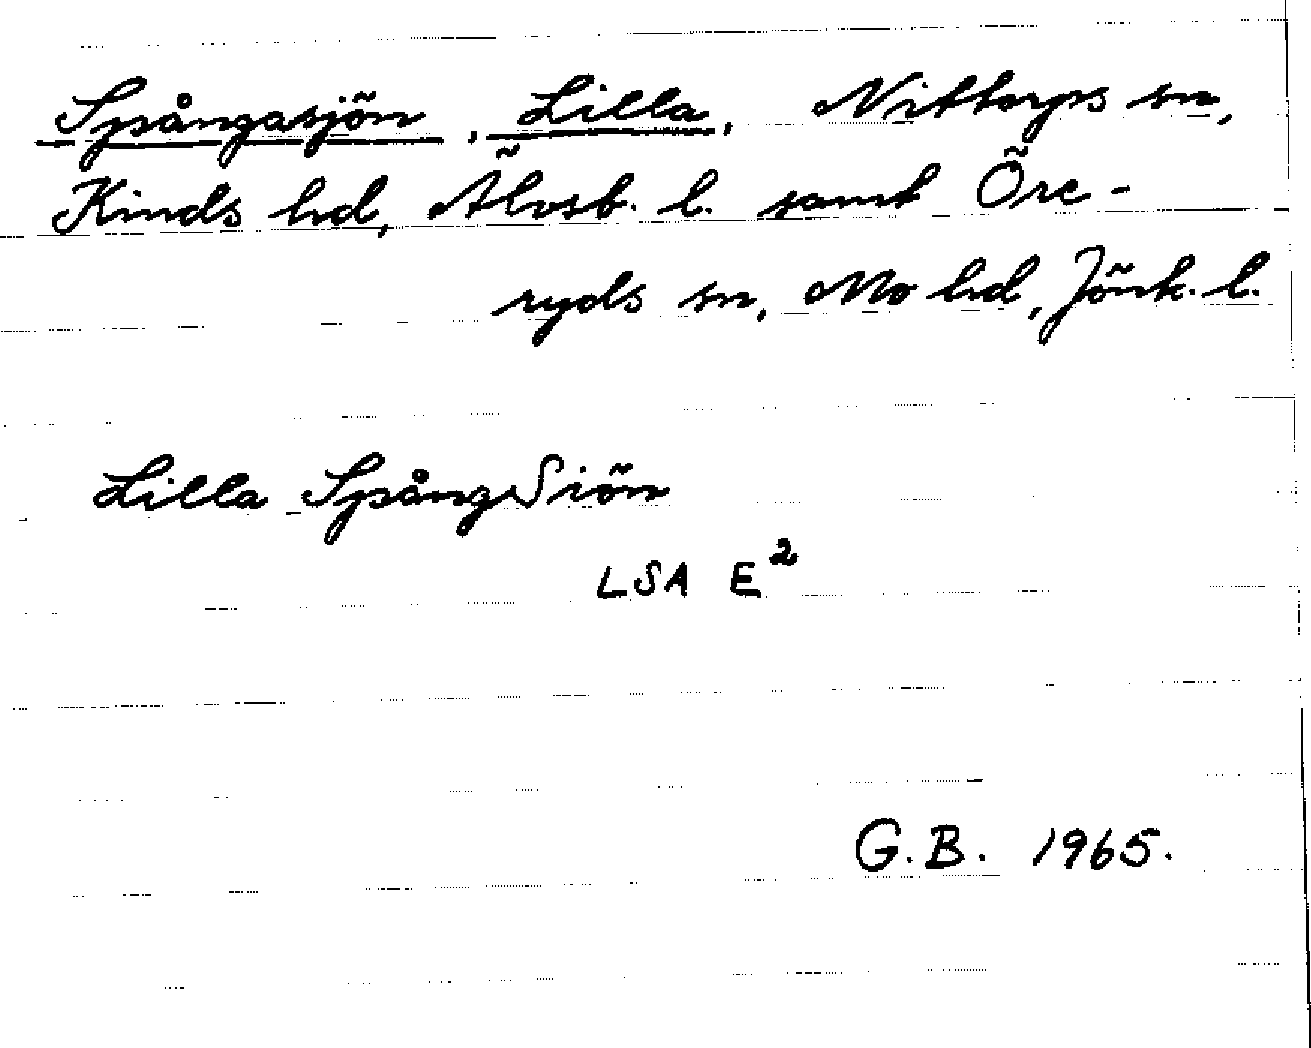 Spångasjön, Lilla, Nittorps sn,
Kinds hd, Älvsb. l. samt Öre-
ryds sn, Mo hd, Jönk. l.
Lilla SpångSiön
LSA E²
G.B. 1965.